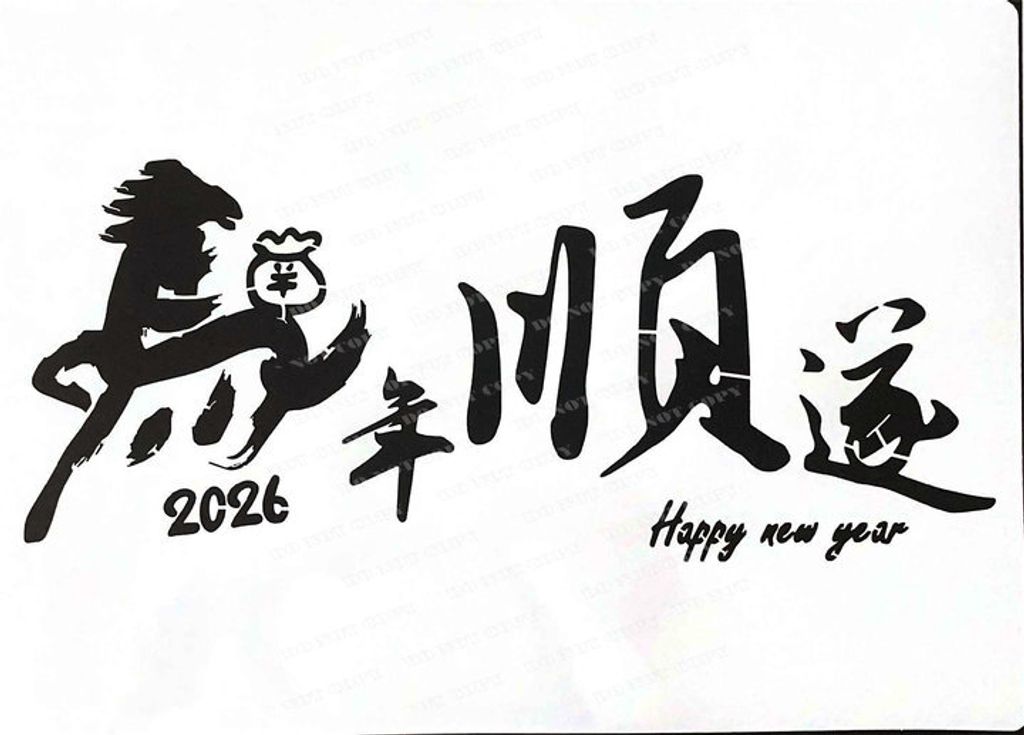 馬年順遂
¥
2026
Happy new year
DO NOT COPY